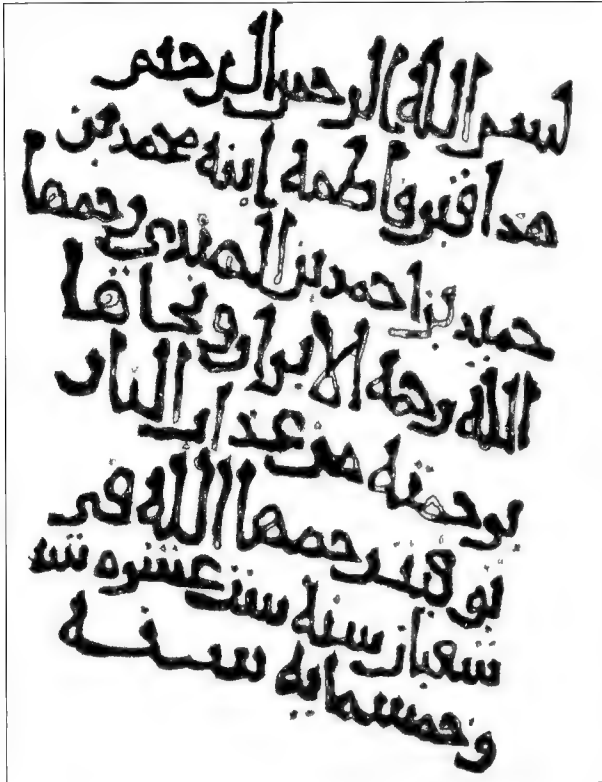 بسم الله الرحمن الرحيم
هذا قبر فاطمة ابنة محمد بن
حميد بن احمد بن المهتدي رحمها
الله رحمة الابرار ونجاها
برحمته من عذاب النار
توفيت رحمها الله في
شعبان سنة ست عشره
وخمسماية سنة